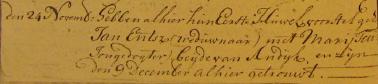 den 24 Novemb: Hebben alhier hun Eerste Huwel. voorstel ged
Jan (weduwnaar) met Marij
Jongedogter) beyde van Andijk, en zyn
den 9 December alhier getrouwt.